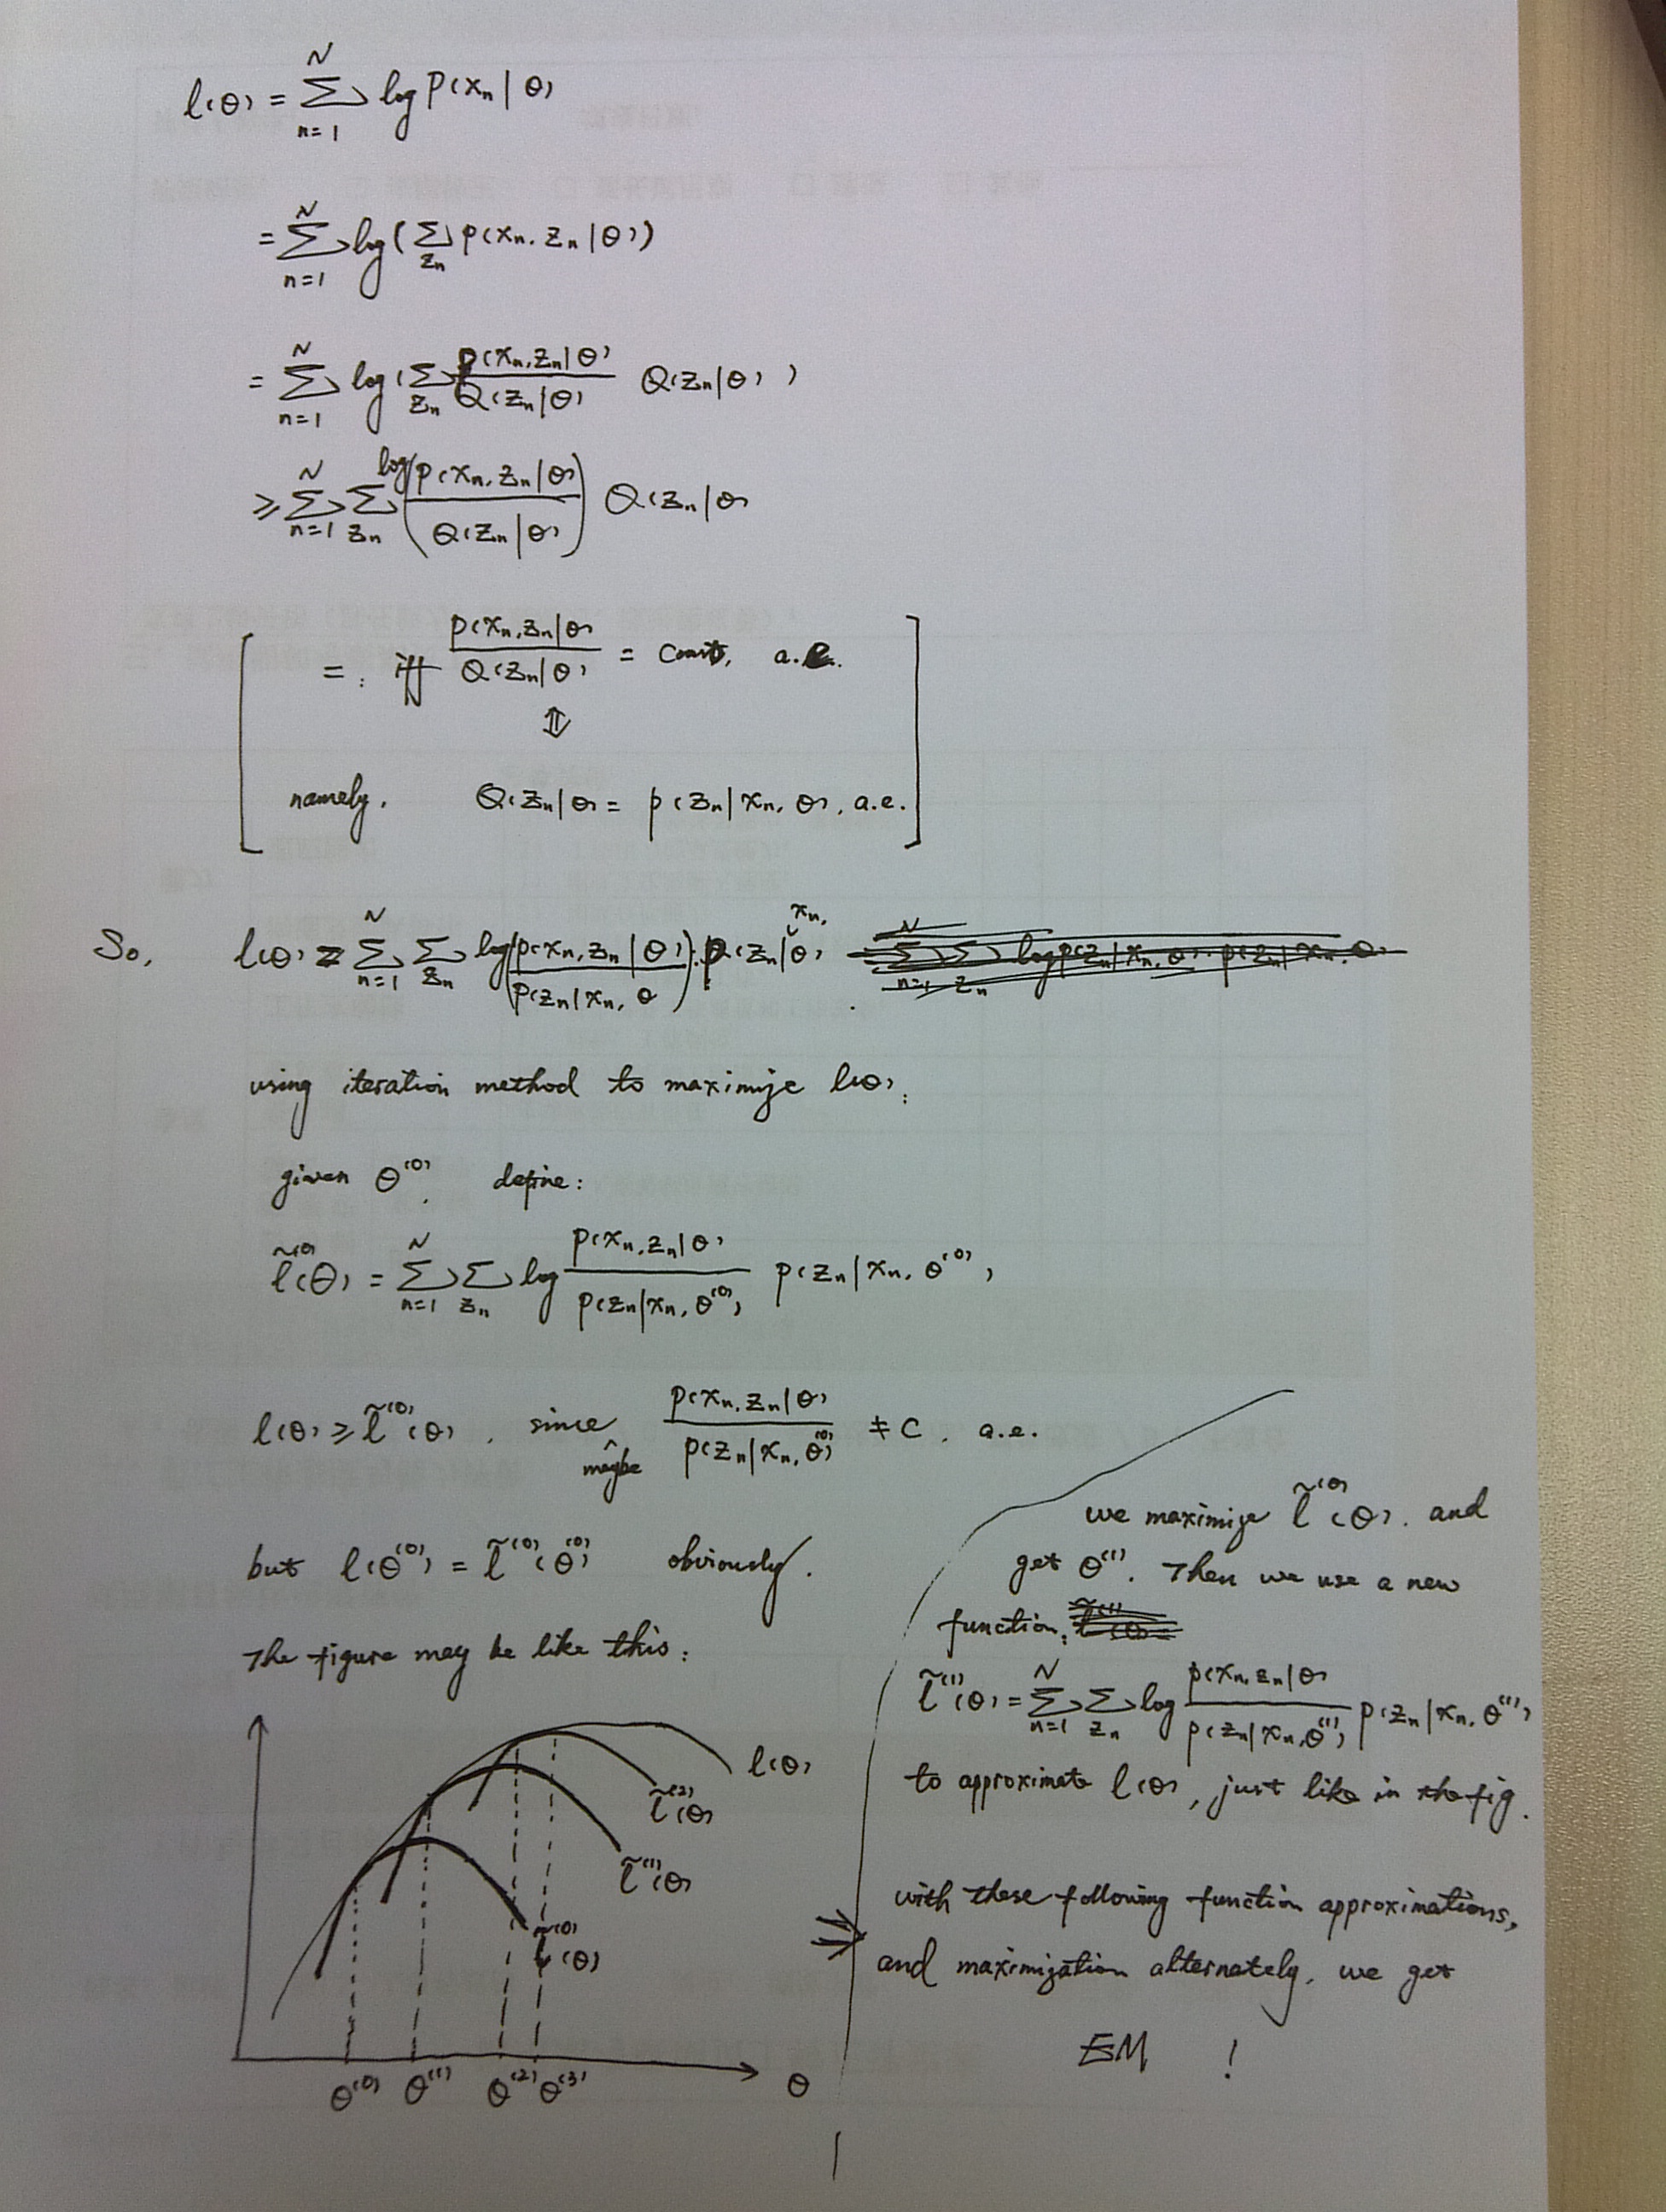 l(θ) = ∑_{n=1}^{N} log p(x_n | θ)
= ∑_{n=1}^{N} log ( ∑_{z_n} p(x_n, z_n | θ) )
= ∑_{n=1}^{N} log ( ∑_{z_n} \frac{p(x_n, z_n | θ)}{Q(z_n | θ)} Q(z_n | θ) )
≥ ∑_{n=1}^{N} ∑_{z_n} log ( \frac{p(x_n, z_n | θ)}{Q(z_n | θ)} ) Q(z_n | θ)
= : iff \frac{p(x_n, z_n | θ)}{Q(z_n | θ)} = const, a.e.
⇕
namely, Q(z_n | θ) = p(z_n | x_n, θ), a.e.
So, l(θ) = ∑_{n=1}^{N} ∑_{z_n} log ( \frac{p(x_n, z_n | θ)}{p(z_n | x_n, θ)} ) · p(z_n | x_n, θ)
using iteration method to maximize l(θ):
given θ^{(0)}, define:
\tilde{l}^{(0)}(θ) = ∑_{n=1}^{N} ∑_{z_n} log \frac{p(x_n, z_n | θ)}{p(z_n | x_n, θ^{(0)})} p(z_n | x_n, θ^{(0)}),
l(θ) ≥ \tilde{l}^{(0)}(θ), since maybe \frac{p(x_n, z_n | θ)}{p(z_n | x_n, θ^{(0)})} ≠ C, a.e.
but l(θ^{(0)}) = \tilde{l}^{(0)}(θ^{(0)}) obviously.
The figure may be like this:
l(θ)
\tilde{l}^{(2)}(θ)
\tilde{l}^{(1)}(θ)
\tilde{l}^{(0)}(θ)
θ^{(0)} θ^{(1)} θ^{(2)} θ^{(3)} θ
we maximize \tilde{l}^{(0)}(θ), and
get θ^{(1)}. Then we use a new
function:
\tilde{l}^{(1)}(θ) = ∑_{n=1}^{N} ∑_{z_n} log \frac{p(x_n, z_n | θ)}{p(z_n | x_n, θ^{(1)})} p(z_n | x_n, θ^{(1)})
to approximate l(θ), just like in the fig.
with these following function approximations,
and maximization alternately, we get
EM !